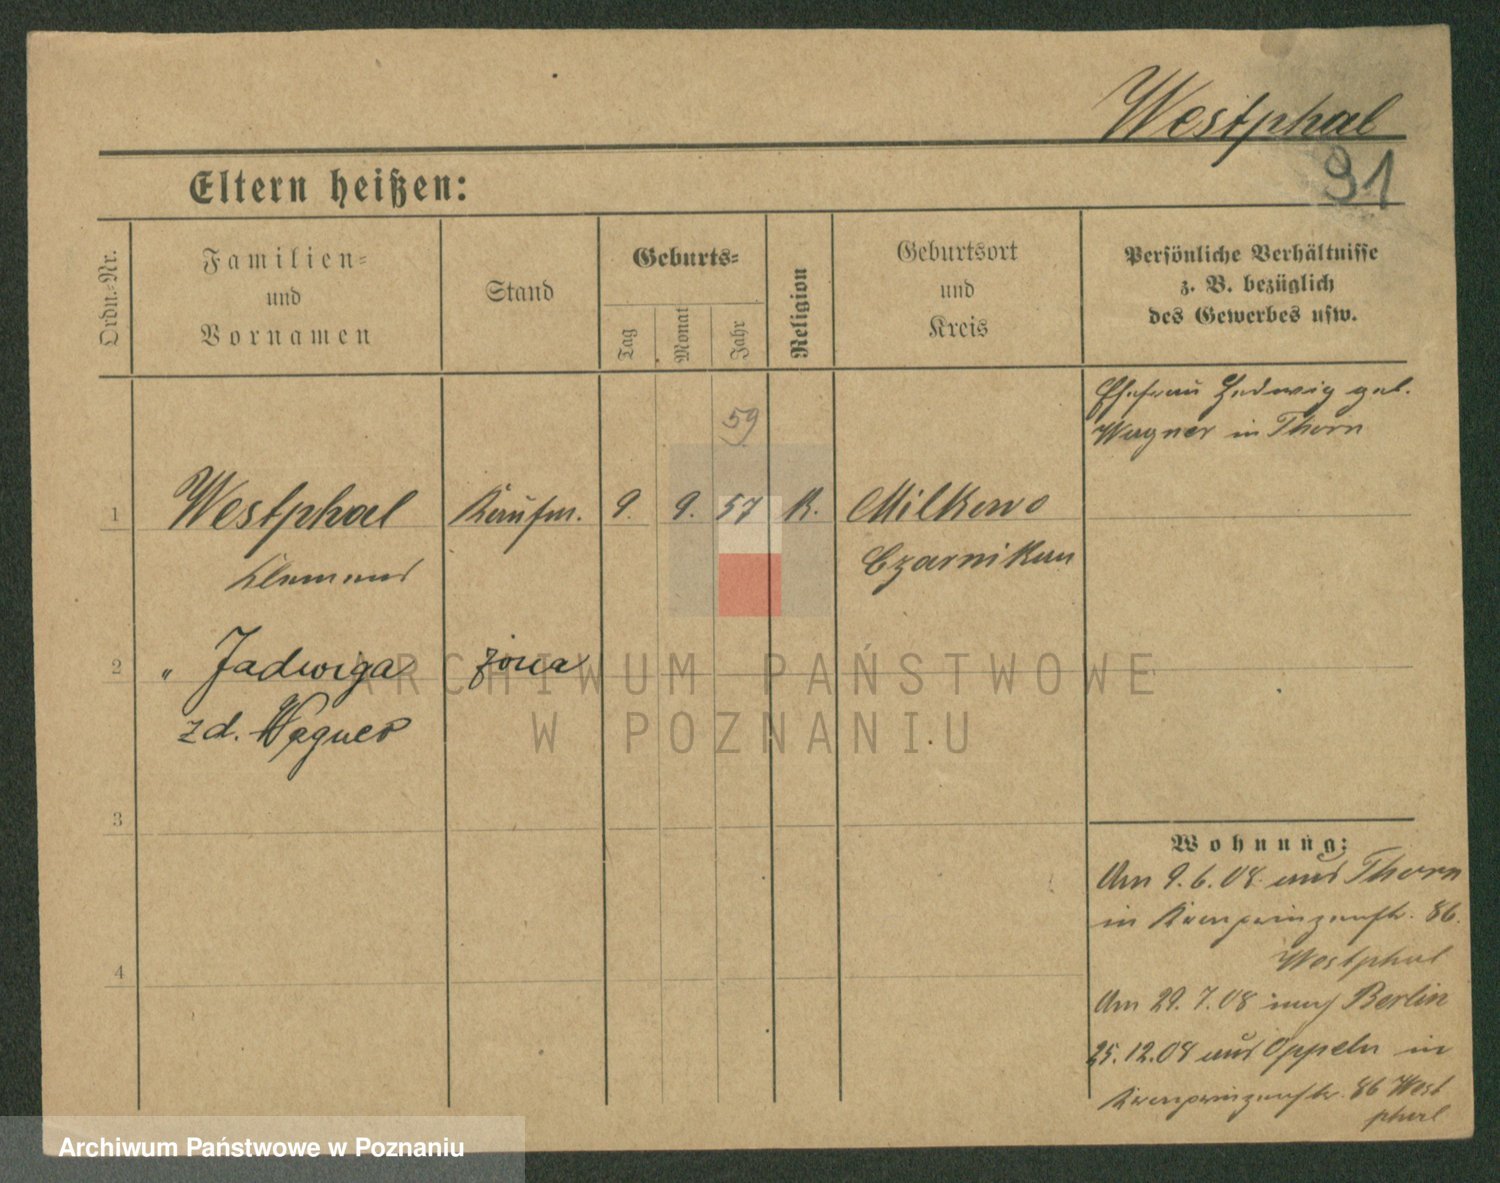 Westphal
91
Eltern heißen:
Ordn.-Nr.
Familien-
und
Vornamen
Stand
Geburts-
Tag
Monat
Jahr
Religion
Geburtsort
und
Kreis
Persönliche Verhältnisse
z. B. bezüglich
des Gewerbes usw.
Ehefrau Hedwig geb.
Wagner in Thorn
59
1 Westphal Kaufm. 9. 9. 57 K. Milkowo
Klemens Czarnikau
2 " Jadwiga żona
zd. Wagner
3
4
Wohnung:
Am 9.6.08 aus Thorn
in Kronprinzenstr. 86.
Westphal
Am 29.7.08 nach Berlin
25.12.08 aus Oppeln in
Kronprinzenstr. 86 West
phal
ARCHIWUM PAŃSTWOWE
W POZNANIU
Archiwum Państwowe w Poznaniu